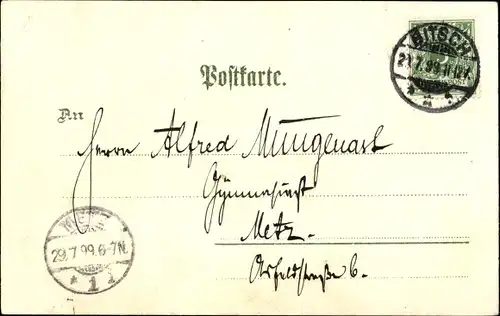 BITSCH
29.7.99.
Postkarte.
An
Herrn Alfred Mungenast
Gymnasiast
Metz.
6.
METZ
29.7.99.6-7N.
* 1 1